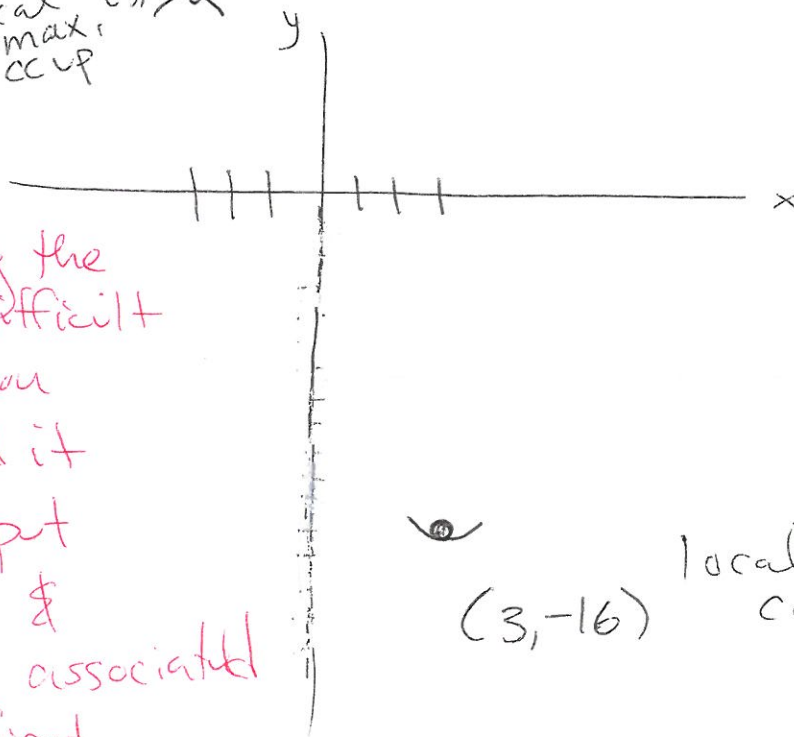 max.
ccup
y
x
the
difficilt
it
$
associated
(3,-16)
local